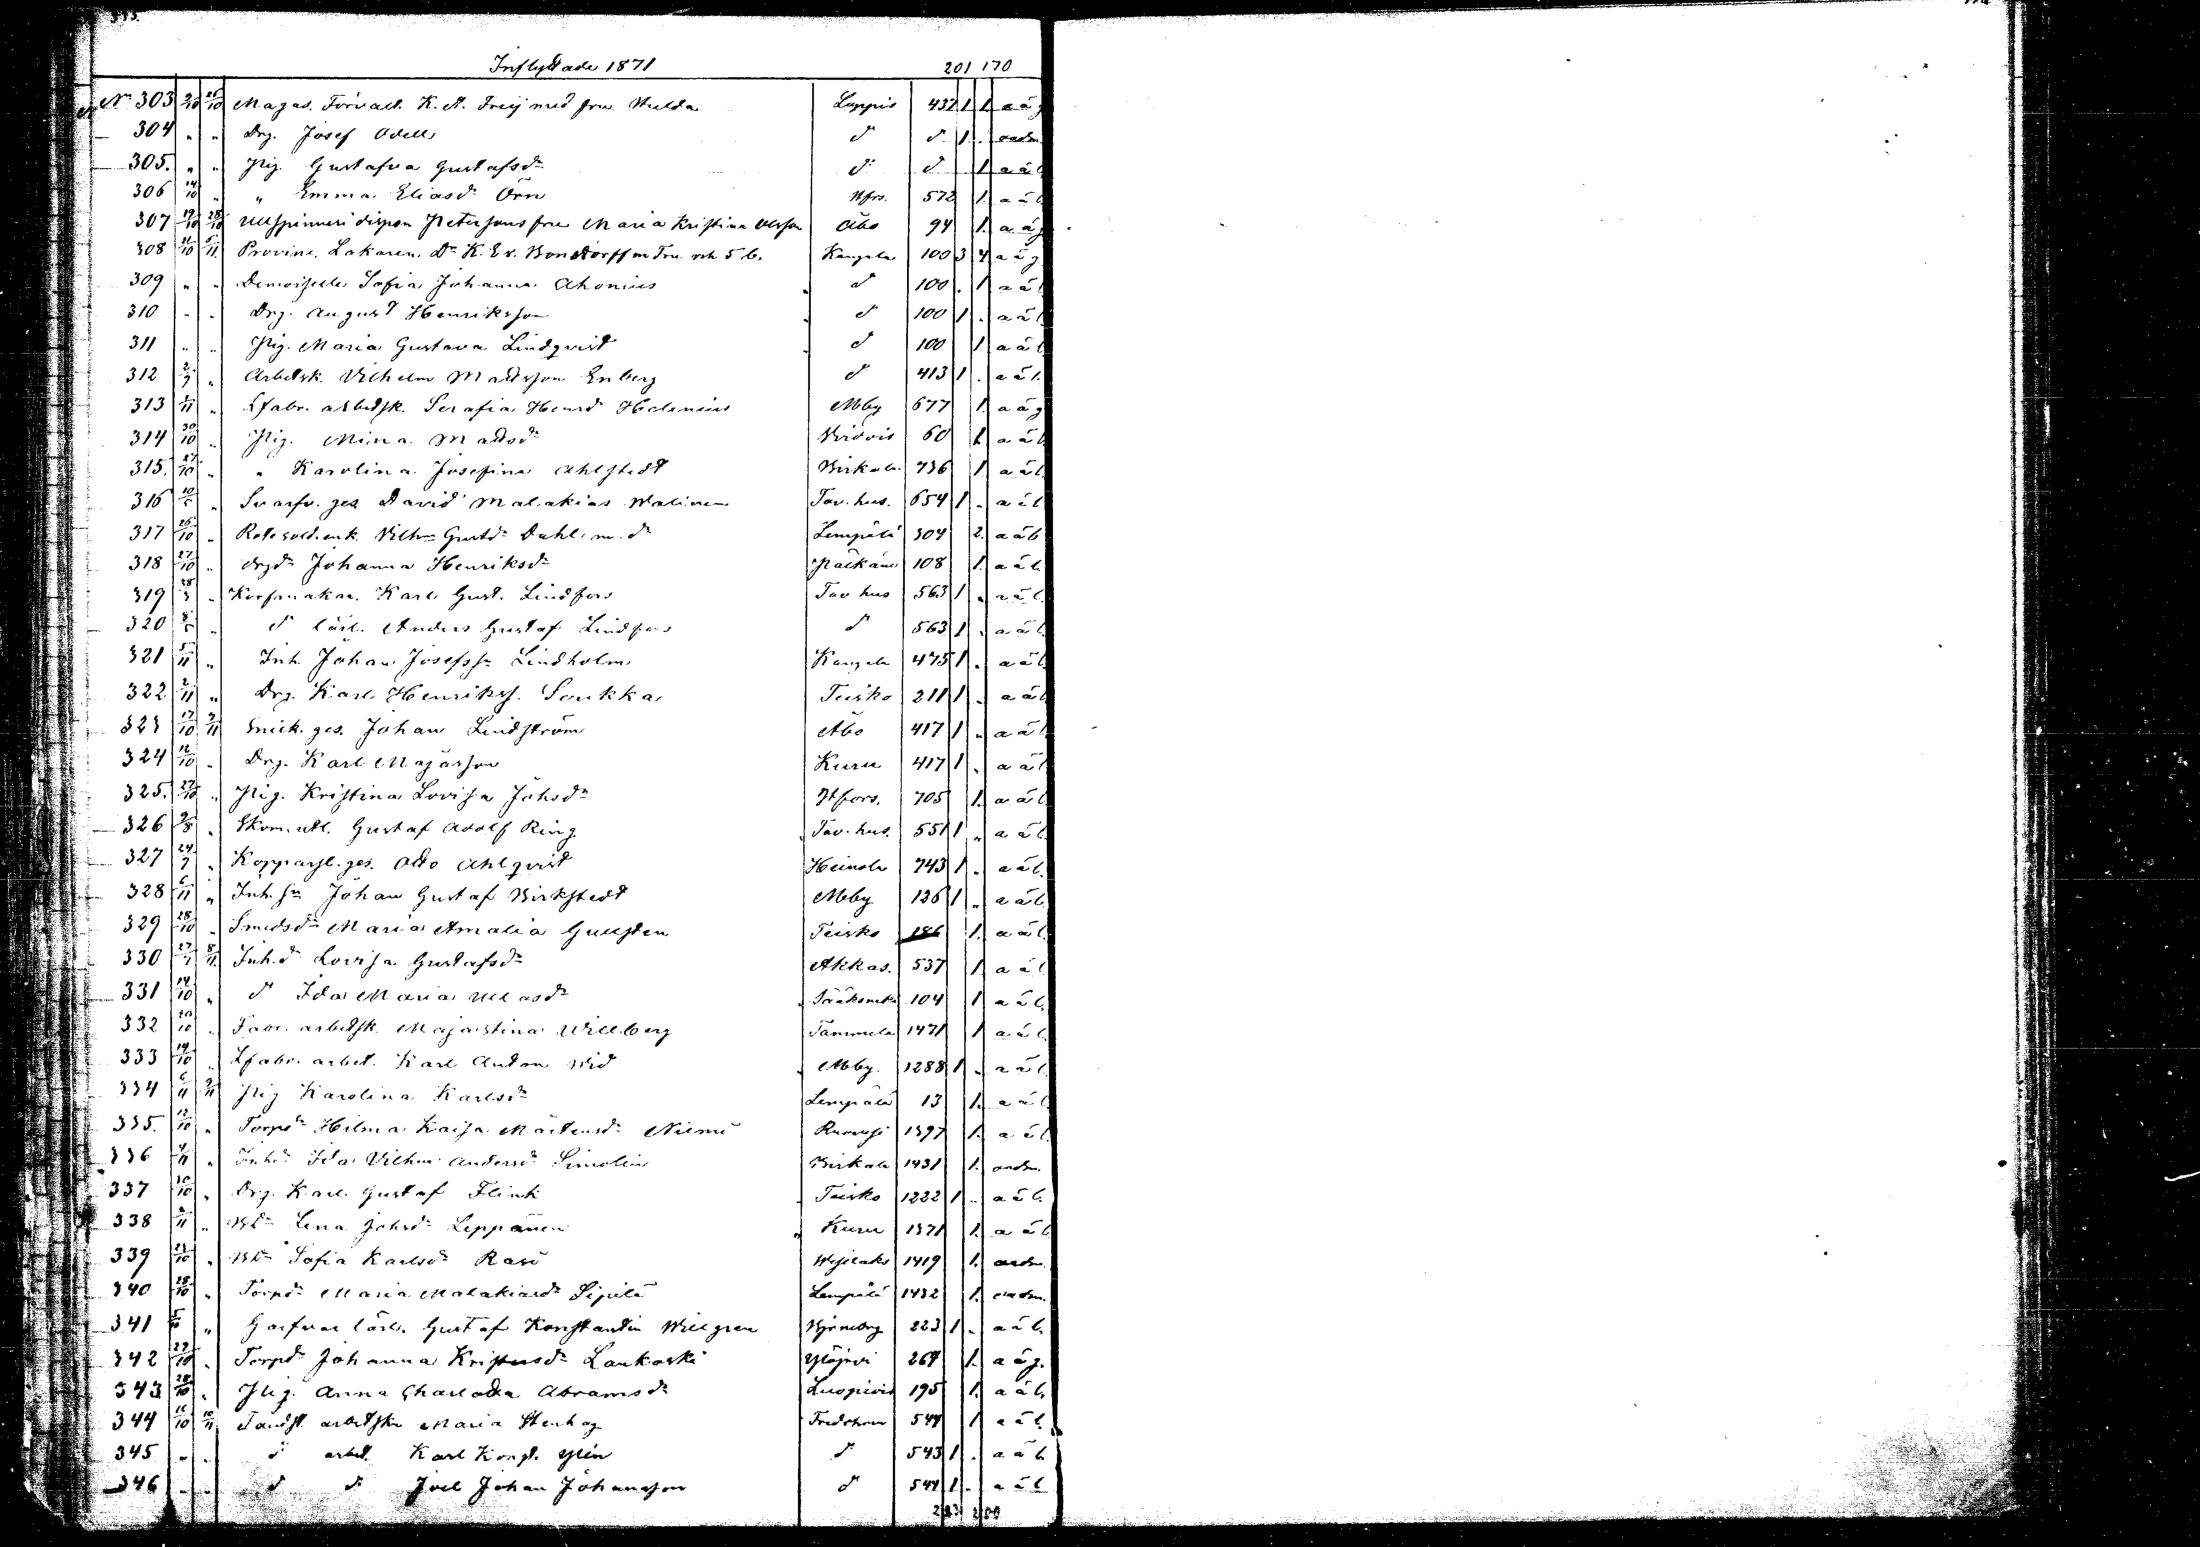 Inflyttade 1871 201 170
No 303 2/10 26/10 Magas. Förvalt. K. A. Freij med fru Hulda Loppis 432 1 1 a ä g
304 " " Drg. Josef Odell d:o d:o 1 . andm.
305. " " Pig. Gustafva Gustafsdr d:o d:o 1 a ä l
306 14/10 " " Emma Eliasdr Örn Hfrs. 572 1. a ä l
307 19/10 28/10 Ullspinneri dispon Petersons fru Maria Kristina Åbo 94 1. a ä g
308 31/10 5/11 Provins. Läkaren Dr K. Ev. Bonsdorff m Fru och 5 b. Kangala 100 3 4 a ä g
309 " " Demoiselle Sofia Johanna Ahonius d:o 100 . 1 a ä l
310 " " Drg. August Henriksson d:o 100 1 . a ä l
311 " " Pig. Maria Gustava Lindqvist d:o 100 1 a ä l
312 " Arbetsk. Vilhelm Mattsson Enberg d:o 413 1 . a ä l.
313 " Lfabr. arbetsk. Serafia Henrd Helenius Mby 677 1. a ä g
314 30/10 " Pig. Mina Mattsdr 60 1. a ä l
315. 27/10 " " Karolina Josefina Ahlstedt Birkala 736 1. a ä l
316 " Svarfv. ges. David Malakias Malinen Tav. hus. 654 1 . a ä l
317 26/10 " Rotesold. enk. Vilhm Gustdr Dahl m. dr Lempälä 304 2. a ä l
318 27/10 " drgdr Johanna Henriksdr Pälkäne 108 1. a ä l.
319 " Korfmakar. Karl Gust. Lindfors Tav hus 563 1 . a ä l.
320 " d:o lärl. Anders Gustaf Lindfors d:o 563 1 . a ä l.
321 5/11 " Inh. Johan Josefssn Lindholm Kangala 475 1 . a ä l.
322 2/11 " Drg. Karl Henrikss. Soukka Teisko 211 1 . a ä l
323 17/10 7/11 Snick. ges. Johan Lindström Åbo 417 1 . a ä l
324 12/10 " Drg. Karl Majasson Kuru 417 1 . a ä l
325. 27/10 " Pig. Kristina Lovisa Johsdr Hfors. 705 1. a ä l
326 " Skom. utl. Gustaf Adolf Ring Tav. hus. 551 1 . a ä l.
327 " Kopparsl. ges. Otto Ahlqvist Heinola 743 1 . a ä l.
328 6/11 " Inh. sn Johan Gustaf Birkstedt Mby 136 1 . a ä l.
329 28/10 " Smedsdr Maria Amalia Gullsten Teisko 186 1. a ä l.
330 8/11 Inh. dr Lovisa Gustafsdr Akkas. 537 1. a ä l
331 14/10 " d:o Ida Maria Sääksmäki 104 1 a ä l.
332 20/10 " Fabr. arbetsk. Majastina Willberg Tammela 1471 1 a ä l.
333 14/10 " Lfabr. arbet. Karl Anton Wid Mby. 1288 1 . a ä l
334 6/11 9/11 Pig Karolina Karlsdr Lempälä 13 1. a ä l
335. 12/10 " Torpdr Hilma Kaisa Mårtensdr Niemi Ruovesi 1397 1. a ä l.
336 4/11 " Inhdr Ida Vilhm Andersdr Simolin Birkala 1431 1. andm.
337 30/10 " Drg. Karl Gustaf Flink Teisko 1222 1 . a ä l.
338 " Bdr Lena Johsdr Leppänen Kuru 1371 1. a ä l
339 23/10 " Bdr Sofia Karlsdr Rasi Wesilaks 1419 1. andm.
340 28/10 " Torpdr Maria Malakiasdr Sipilä Lempälä 1432 1. andm.
341 " Garfvar lärl. Gustaf Konstantin Willgren Björneborg 223 1 . a ä l.
342 27/10 " Torpdr Johanna Kristersdr Laukoski Ylöjevi 264 1. a ä g.
343 28/10 " Pig. Anna Charlotta Abramsdr Luopiois 195 1. a ä l.
344 11/10 10/11 Tändst. arbetska Maria Stenhag Fredrhamn 544 1 a ä l
345 " " d:o arbet. Karl Konst. Ylén d:o 543 1 . a ä l
346 " " d:o d:o Joel Johan Johansson d:o 544 1 . a ä l